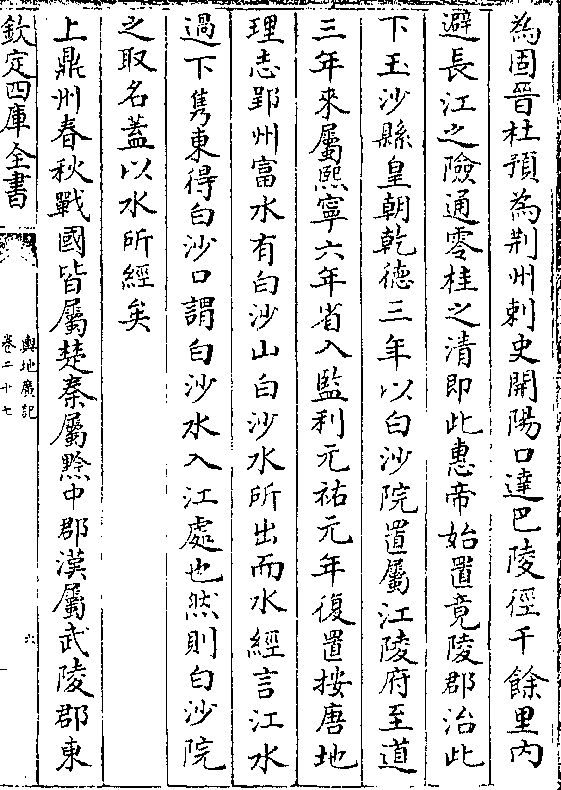 為固晉杜預為荆州刺史開陽口達巴陵徑千餘里内
避長江之險通零桂之清即此惠帝始置竟陵郡治此
下玉沙縣皇朝乾德三年以白沙院置屬江陵府至道
三年來屬熙寧六年省入監利元祐元年復置按唐地
理志郢州富水有白沙山白沙水所出而水經言江水
過下雋東得白沙口謂白沙水入江處也然則白沙院
之取名葢以水所經矣
上鼎州春秋戰國皆屬楚秦屬黔中郡漢屬武陵郡東
欽定四庫全書
輿地廣記
卷二十七
六